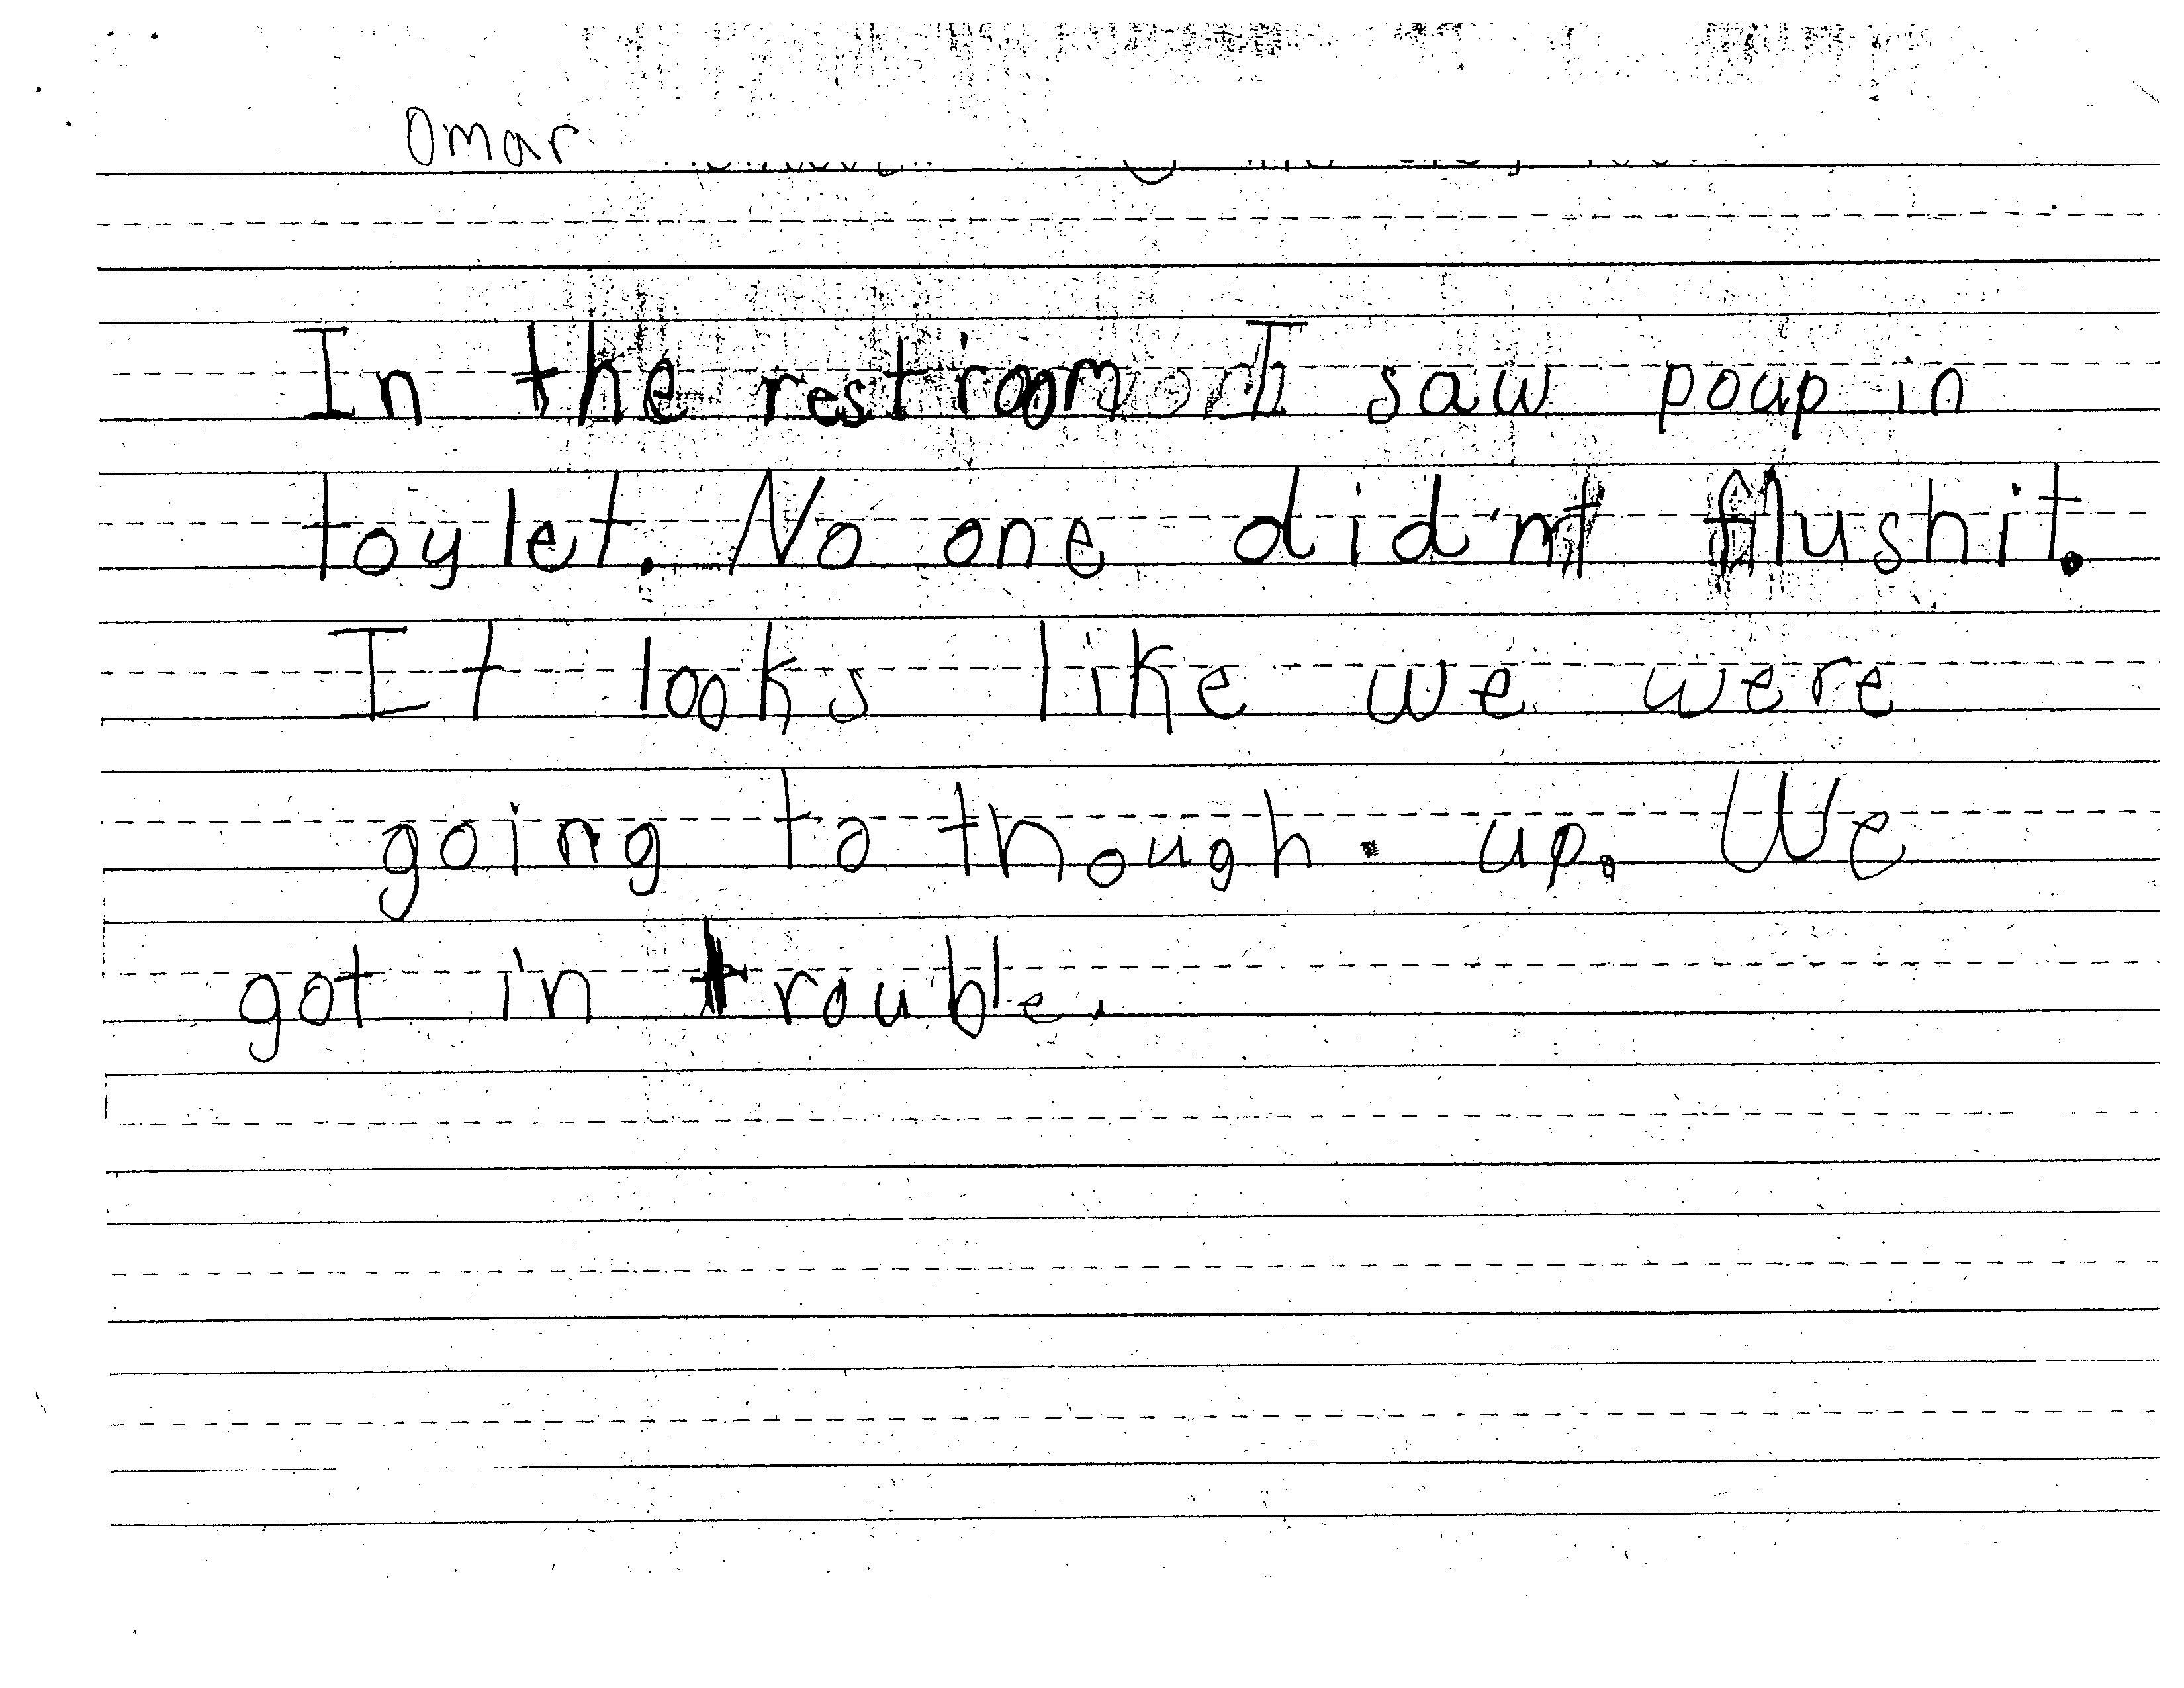 Omar
In the restroom I saw poup in
toylet. No one did'nt flushit.
It looks like we were
going to though. up. We
got in trouble.